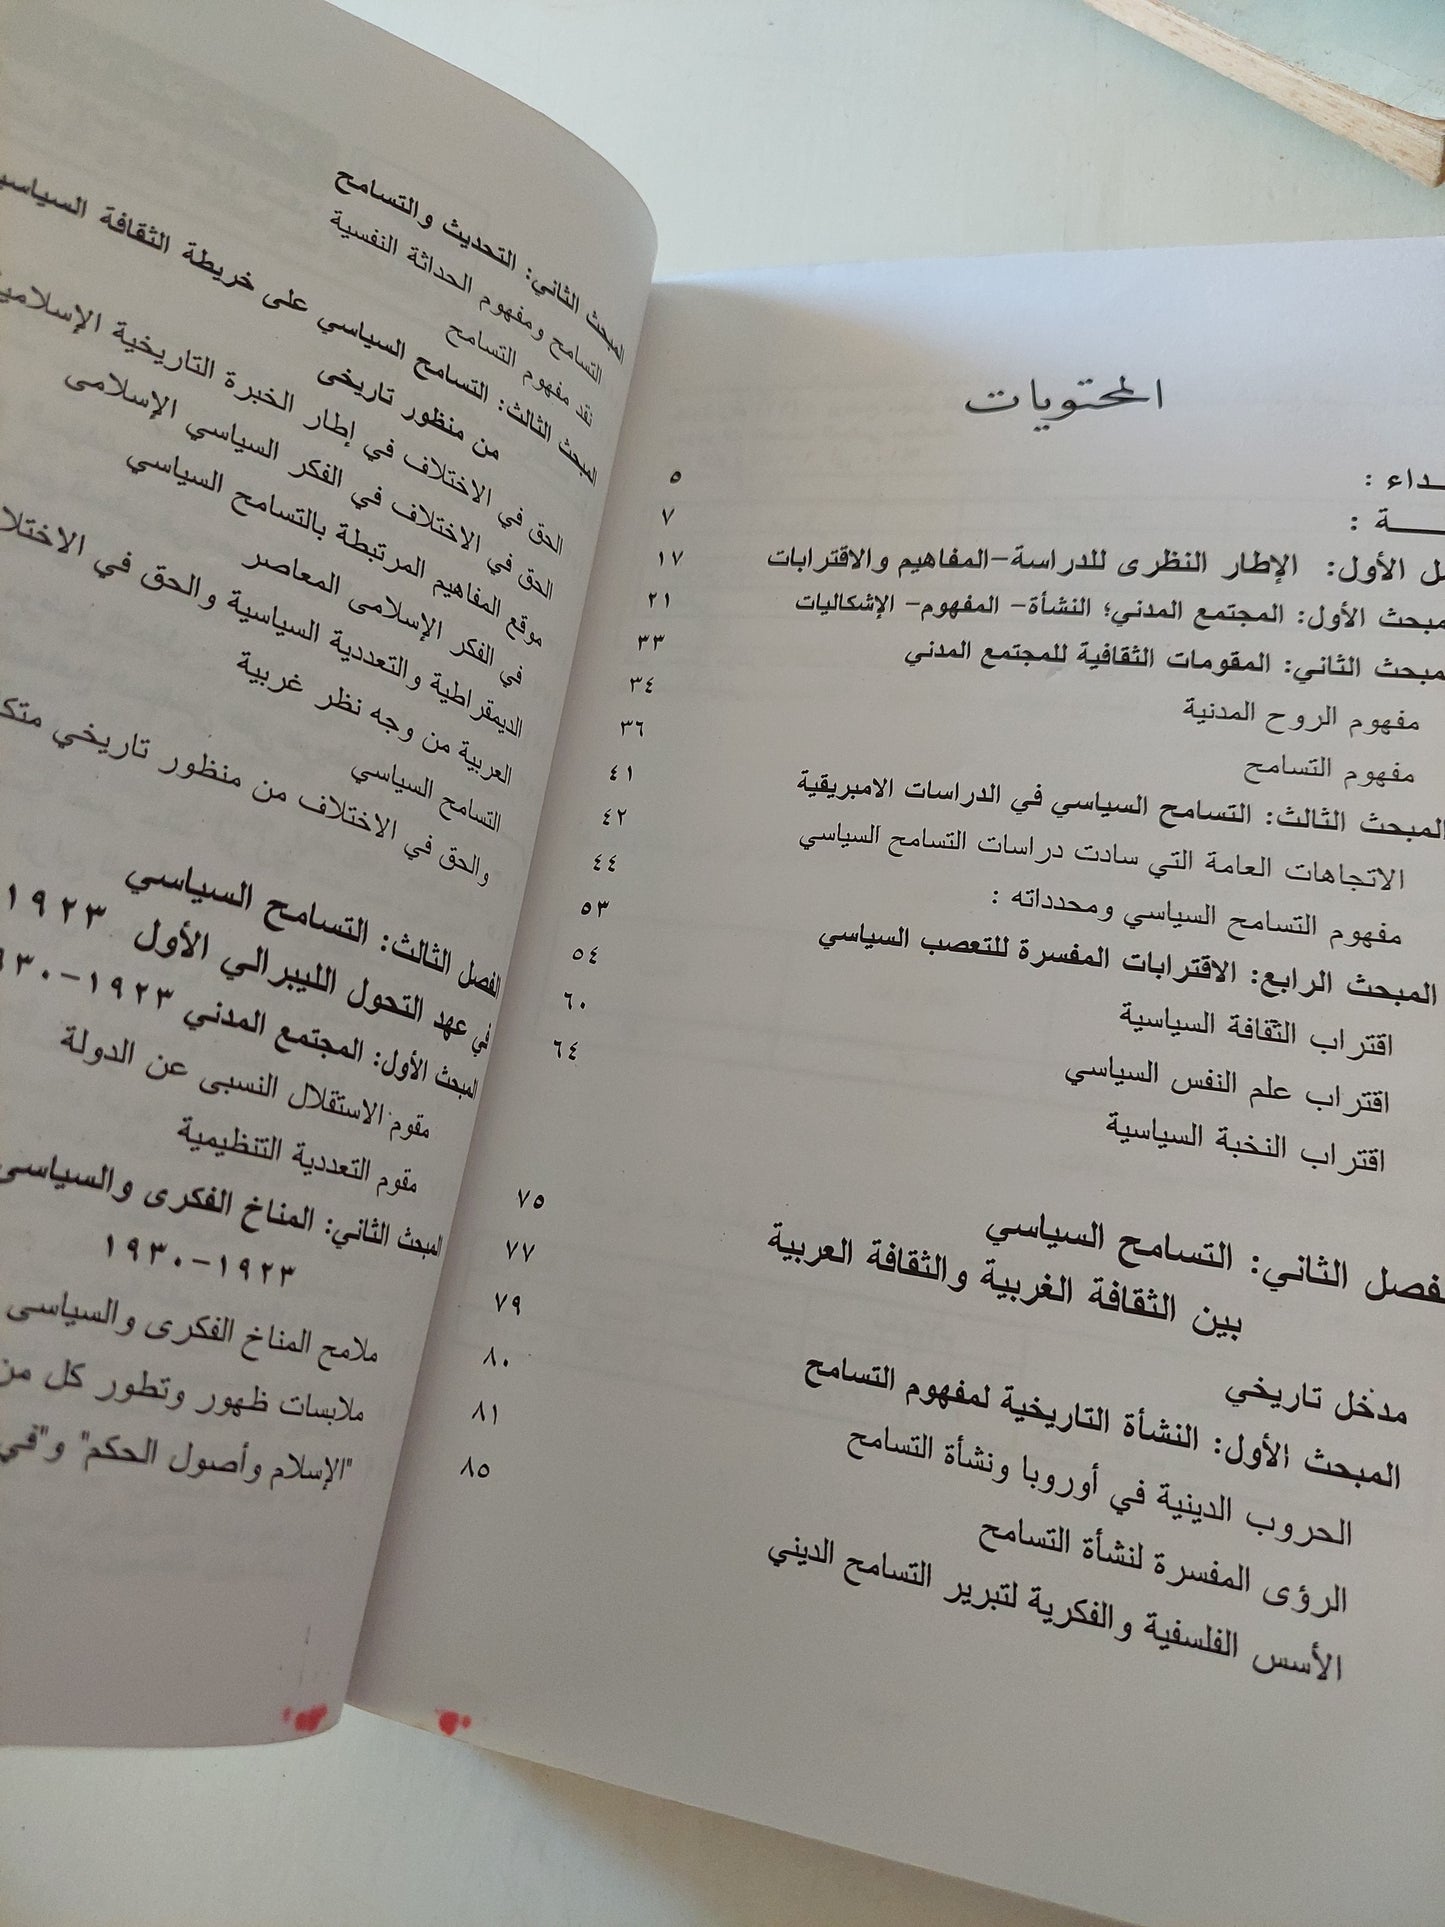 المحتويات
ـداء : ٥
ـة : ٧
ل الأول: الإطار النظرى للدراسة-المفاهيم والاقترابات ١٧
مبحث الأول: المجتمع المدني؛ النشأة- المفهوم- الإشكاليات ٢١
مبحث الثاني: المقومات الثقافية للمجتمع المدني ٣٣
مفهوم الروح المدنية ٣٤
مفهوم التسامح ٣٦
المبحث الثالث: التسامح السياسي في الدراسات الامبريقية ٤١
الاتجاهات العامة التي سادت دراسات التسامح السياسي ٤٢
مفهوم التسامح السياسي ومحدداته : ٤٤
المبحث الرابع: الاقترابات المفسرة للتعصب السياسي ٥٣
اقتراب الثقافة السياسية ٥٤
اقتراب علم النفس السياسي ٦٠
اقتراب النخبة السياسية ٦٤
فصل الثاني: التسامح السياسي
بين الثقافة الغربية والثقافة العربية ٧٥
مدخل تاريخي ٧٧
المبحث الأول: النشأة التاريخية لمفهوم التسامح ٧٩
الحروب الدينية في أوروبا ونشأة التسامح ٨٠
الرؤى المفسرة لنشأة التسامح ٨١
الأسس الفلسفية والفكرية لتبرير التسامح الديني ٨٥
المبحث الثاني: التحديث والتسامح
التسامح ومفهوم الحداثة النفسية
نقد مفهوم التسامح
المبحث الثالث: التسامح السياسي على خريطة الثقافة السياسي
من منظور تاريخى
الحق في الاختلاف في إطار الخبرة التاريخية الإسلامي
الحق في الاختلاف في الفكر السياسي الإسلامى
موقع المفاهيم المرتبطة بالتسامح السياسي
في الفكر الإسلامى المعاصر
الديمقراطية والتعددية السياسية والحق في الاختلا
العربية من وجه نظر غربية
التسامح السياسي
والحق في الاختلاف من منظور تاريخي متك
الفصل الثالث: التسامح السياسي
في عهد التحول الليبرالي الأول ١٩٢٣
المبحث الأول: المجتمع المدني ١٩٢٣-٩٣٠
مقوم الاستقلال النسبى عن الدولة
مقوم التعددية التنظيمية
المبحث الثاني: المناخ الفكرى والسياسى
١٩٢٣-١٩٣٠
ملامح المناخ الفكرى والسياسى
ملابسات ظهور وتطور كل من
"الإسلام وأصول الحكم" و"في